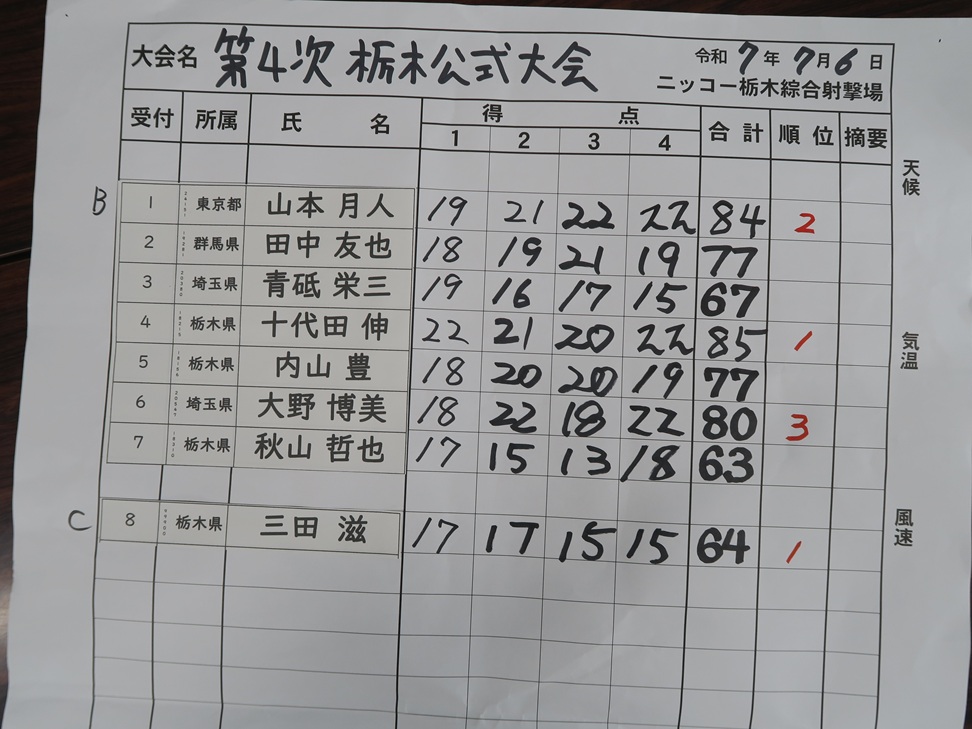 大会名 第4次 栃木公式大会 令和 7 年 7 月 6 日
ニッコー栃木綜合射撃場
受付 所属 氏 名 得 点 合 計 順 位 摘要
1 2 3 4
天候
B 1 東京都 山本 月人 19 21 22 22 84 2
2 群馬県 田中 友也 18 19 21 19 77
3 埼玉県 青砥 栄三 19 16 17 15 67
4 栃木県 十代田 伸 22 21 20 22 85 1
気温
5 栃木県 内山 豊 18 20 20 19 77
6 埼玉県 大野 博美 18 22 18 22 80 3
7 栃木県 秋山 哲也 17 15 13 18 63
C 8 栃木県 三田 滋 17 17 15 15 64 1
風速